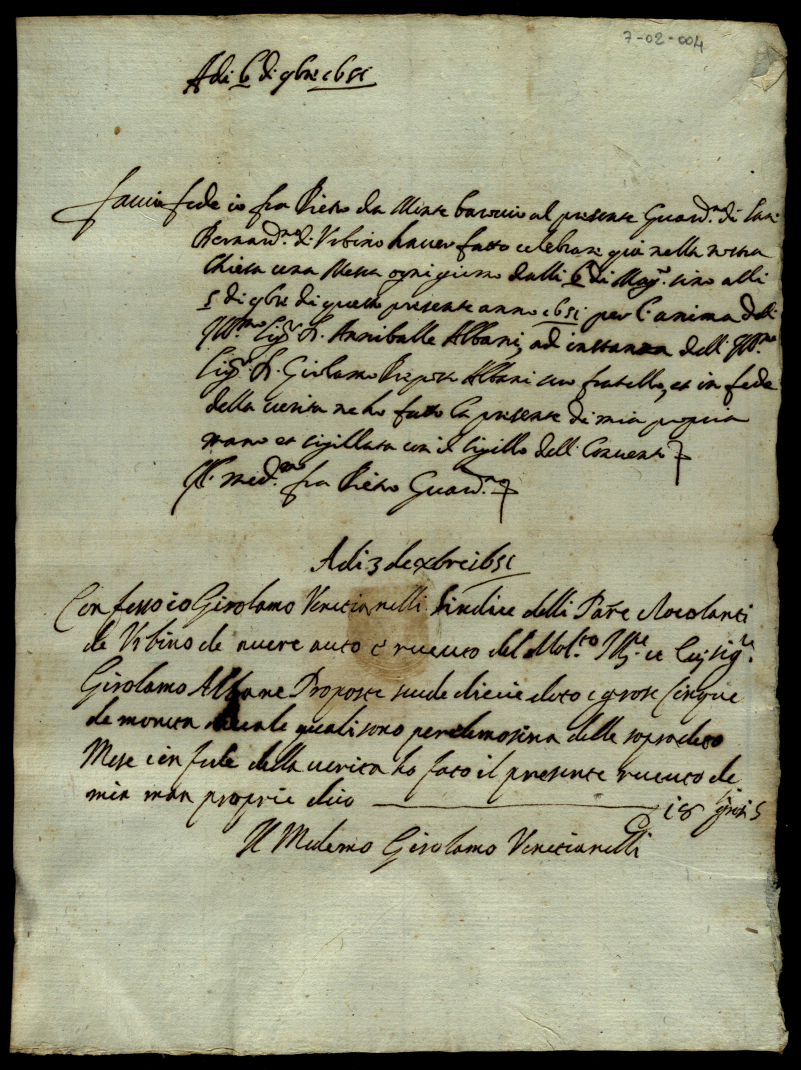 7-02-004
Adi 6 di 9bre 1651
Faccio fede io fra Pietro da Monte baroccio al presente Guard.no di San
Bernard.no di Urbino haver fatto celebrare qui nella nostra
Chiesa una Messa ogni giorno dalli 6 di Mag.o sino alli
5 di 9bre di questo presente anno 1651 per l'anima dell'
Ill.mo Sig.r Anniballe Albani, ad instanza dell' Ill.mo
Sig.r Girolamo Preposto Albani suo fratello, et in fede
della verita ne ho fatto la presente di mia propria
mano et sigillata con il sigillo dell Convento
Il med.mo fra Pietro Guard.no
Adi 3 de xbre 1651
Confesso io Girolamo Venetianelli Sindice delli Patre
de Urbino de avere auto e riceuto del Mol.to Ill.re
Girolamo Albane Proposte scude dicie doto e grose Cinque
de moneta quali sono per elemosina delle sopradeto
Mese e in fede della verita ho fato il presente riceuto de
mia man proprie dico 18 grosi 5
Il Medemo Girolamo Venetianelli